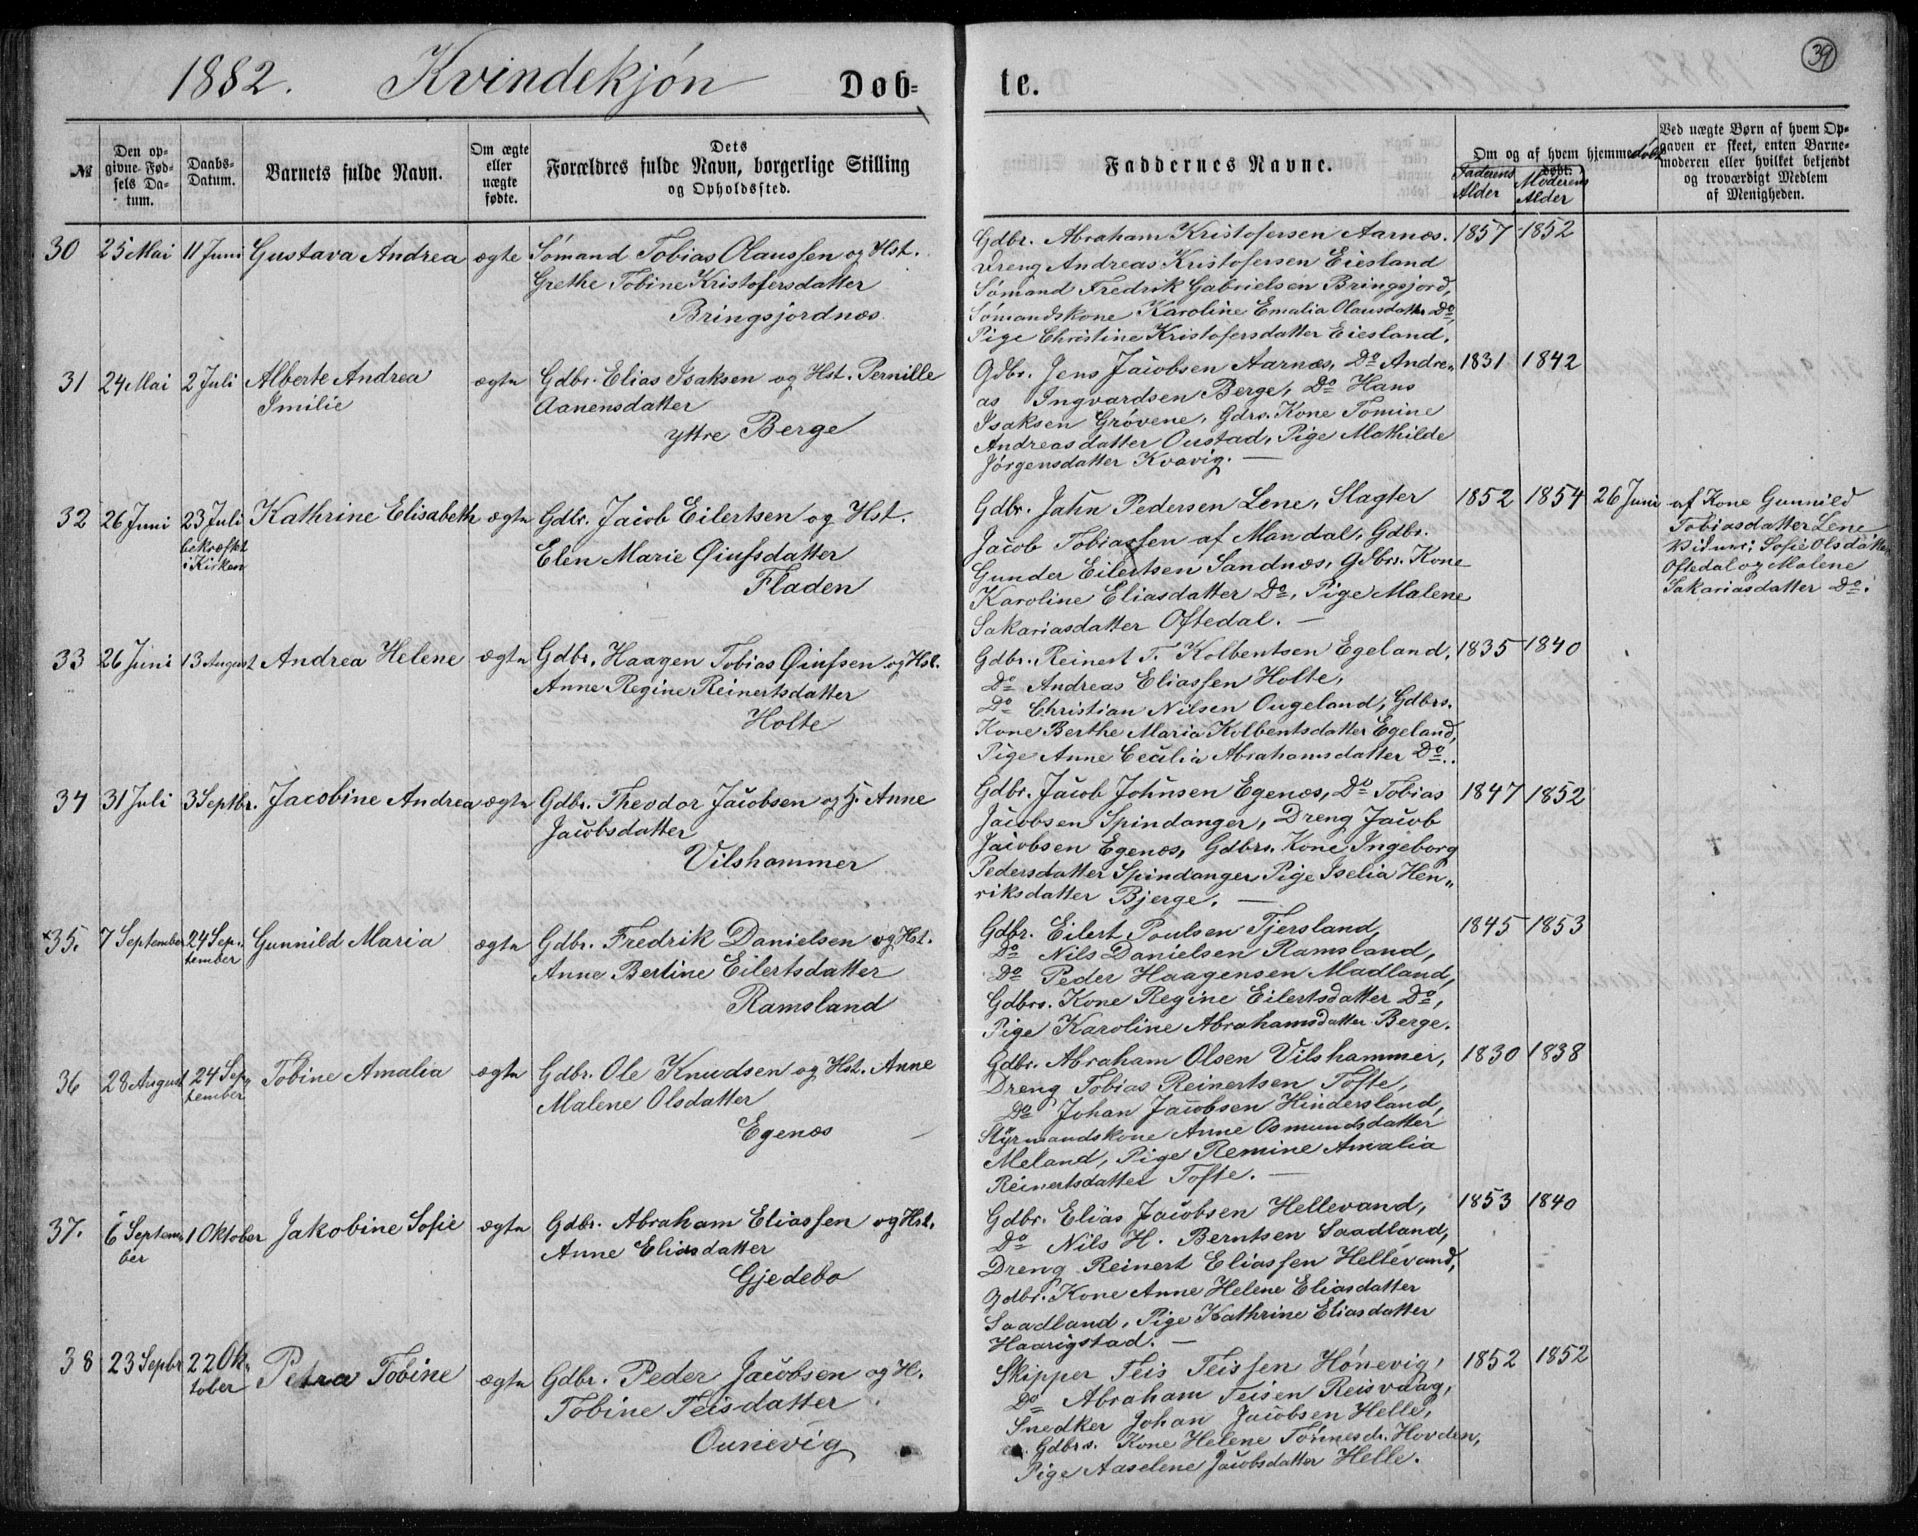 1882. Kvindekjøn Døb=
te. 39
№
Den op-
givne Fød-
sels Da-
tum.
Daabs-
Datum.
Barnets fulde Navn.
Om ægte
eller
uægte
fødte.
Dets
Forældres fulde Navn, borgerlige Stilling
og Opholdssted.
Faddernes Navne.
Om og af hvem hjemmedøbt
døbt.
Faderens
Alder
Moderens
Alder
Ved uægte Børn af hvem Op-
gaven er skeet, enten Barne-
moderen eller hvilket bekjendt
og troværdigt Medlem
af Menigheden.
30 25 Mai 11 Juni Gustava Andrea ægte Sømand Tobias Olaussen og Hst.
Grethe Tobine Kristofersdatter
Bringsjordnæs
Gdbr. Abraham Kristofersen Aarnæs. 1857 1852
Dreng Andreas Kristofersen Eiesland
Sømand Fredrik Gabrielsen Bringsjord,
Sømandskone Karoline Emalia Olausdatter Do,
Pige Christine Kristofersdatter Eiesland.
31 24 Mai 2 Juli Alberte Andrea ægte Gdbr. Elias Isaksen og Hst. Pernille
Imilie Aanensdatter
yttre Berge
Gdbr. Jens Jacobsen Aarnæs, Do Andre- 1831 1842
as Ingvardsen Berge, Do Hans
Isaksen Grøvene, Gdrs. Kone Tomine
Andreasdatter Oustad, Pige Mathilde
Jørgensdatter Kvavig. —
32 26 Juni 23 Juli Kathrine Elisabeth ægte Gdbr. Jacob Eilertsen og Hst.
bekræftet
i Kirken
Elen Marie Øiufsdatter
Fladen
Gdbr. Jahn Pedersen Lene, Slagter 1852 1854 26 Juni af Kone Gunnild
Jacob Tobiassen af Mandal, Gdbr. Tobiasdatter Lene
Gunder Eilertsen Sandnæs, Gdbrs. Kone Vidner: Sofie Olsdatter
Karoline Eliasdatter Do, Pige Malene Oftedal og Malene
Sakariasdatter Oftedal. — Sakariasdatter Do.
33 26 Juni 13 August Andrea Helene ægte Gdbr. Haagen Tobias Øiufsen og Hst.
Anne Regine Reinertsdatter
Holte
Gdbr. Reinert T. Kolbentsen Egeland, 1835 1840
Do Andreas Eliassen Holte,
Do Christian Nilsen Ougeland, Gdbrs.
Kone Berthe Maria Kolbentsdatter Egeland,
Pige Anne Cecilia Abrahamsdatter Do.
34 31 Juli 3 Septbr. Jacobine Andrea ægte Gdbr. Theodor Jacobsen og H. Anne
Jacobsdatter
Vilshammer
Gdbr. Jacob Johnsen Egenæs, Do Tobias 1847 1852
Jacobsen Spindanger, Dreng Jacob
Jacobsen Egenæs, Gdbrs. Kone Ingeborg
Pedersdatter Spindanger Pige Iselia Hen-
riksdatter Bjerge. —
×35. 7 September 24 Sep- Gunnild Maria ægte Gdbr. Fredrik Danielsen og Hst.
tember Anne Bertine Eilertsdatter
Ramsland
Gdbr. Eilert Poulsen Tjersland, 1845 1853
Do Nils Danielsen Ramsland,
Do Peder Haagensen Madland,
Gdbrs. Kone Regine Eilertsdatter Do,
Pige Karoline Abrahamsdatter Berge.
36 28 August 24 Sep- Tobine Amalia ægte Gdbr. Ole Knudsen og Hst. Anne
tember Malene Olsdatter
Egenæs
Gdbr. Abraham Olsen Vilshammer, 1830 1838
Dreng Tobias Reinertsen Tofte,
Do Johan Jacobsen Hindersland,
Styrmandskone Anne Osmundsdatter
Meland, Pige Remine Amalia
Reinertsdatter Tofte. —
37. 6 Septem- 1 Oktober Jakobine Sofie ægte Gdbr. Abraham Eliassen og Hst.
ber Anne Eliasdatter
Gjedebo
Gdbr. Elias Jacobsen Hellevand, 1853 1840
Do Nils H. Berntsen Saadland,
Dreng Reinert Eliassen Hellevand,
Gdbr. Kone Anne Helene Eliasdatter
Saadland, Pige Kathrine Eliasdatter
Haarigstad. —
38 23 Septbr 22 Ok- Petra Tobine ægte Gdbr. Peder Jacobsen og H.
tober Tobine Teisdatter
Ounevig
Skipper Teis Teissen Hønevig, 1852 1852
Do Abraham Teisen Reisvaag,
Snedker Johan Jacobsen Helle,
Gdbrs. Kone Helene Tønnesdr. Hovden,
Pige Aaselene Jacobsdatter Helle.